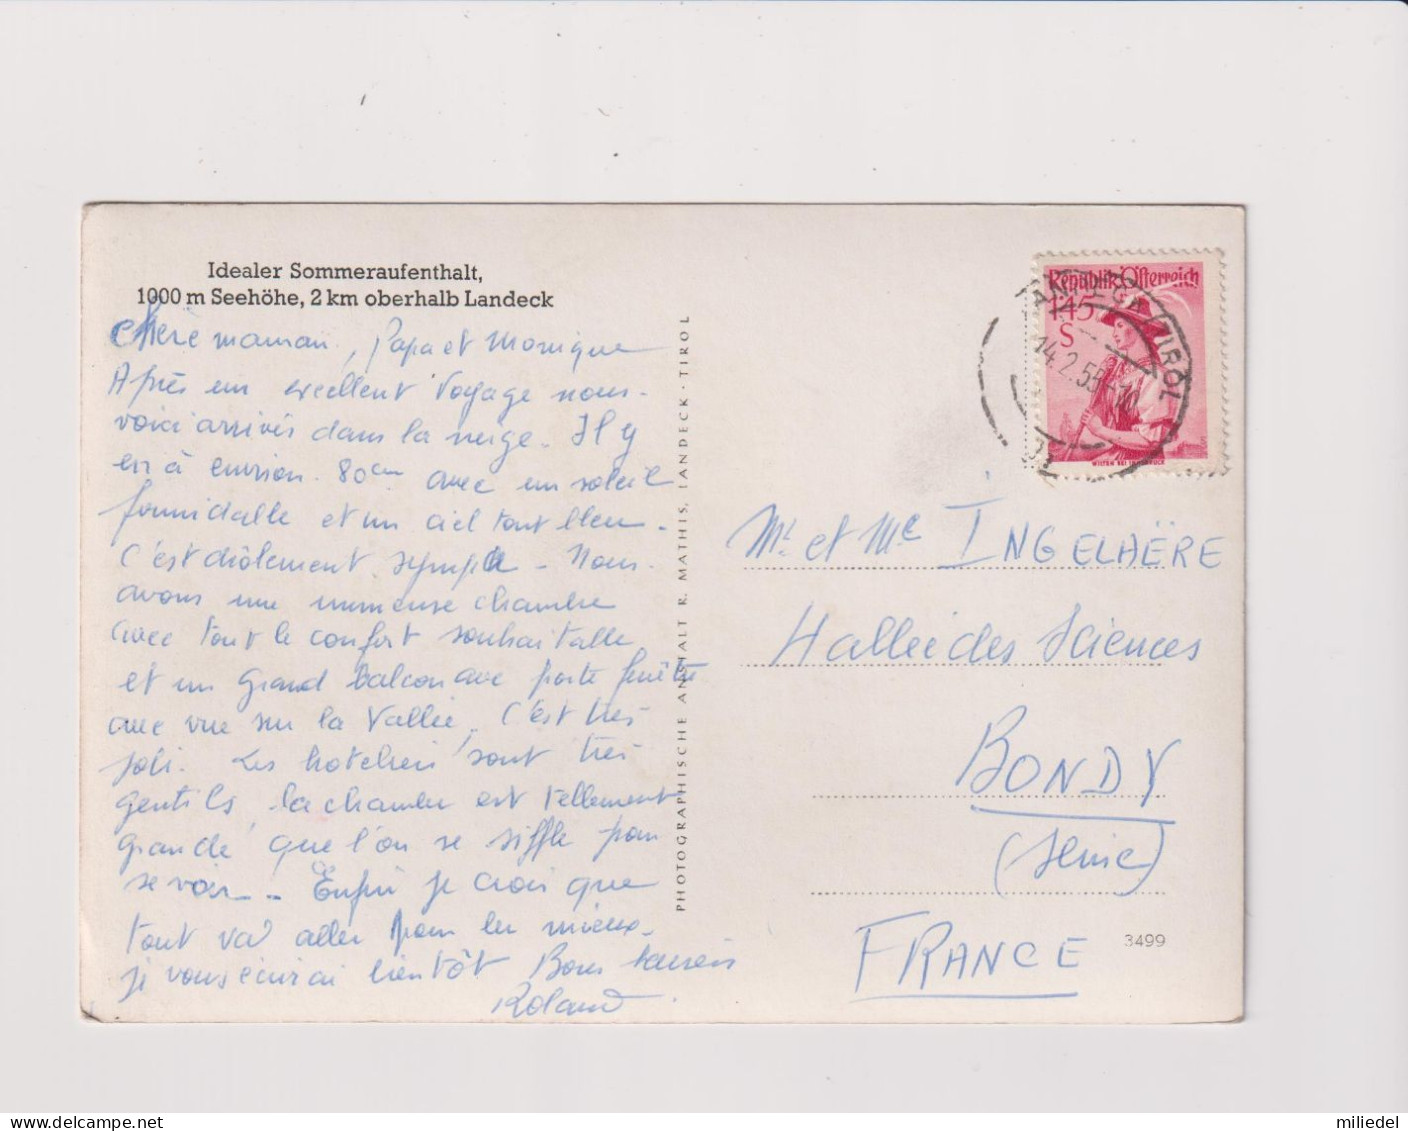 Idealer Sommeraufenthalt,
1000 m Seehöhe, 2 km oberhalb Landeck
Chère maman, Papa et Monique
Après un excellent voyage nous-
voici arrivés dans la neige. Il y
en a environ 80cm avec un soleil
formidable et un ciel tout bleu.
C'est drôlement sympa. Nous
avons une immense chambre
avec tout le confort souhaitable
et un grand balcon avec porte fenêtre
avec vue sur la vallée, c'est très
joli. Les hoteliers sont très
gentils, la chambre est tellement
grande que l'on se siffle pour
se voir. Enfin je crois que
tout va aller pour le mieux.
je vous écrirai bientôt Bons baisers
Roland.
PHOTOGRAPHISCHE ANSTALT R. MATHIS, LANDECK - TIROL
Republik Österreich
1.45
S
WILTEN BEI INNSBRUCK
LANDECK TIROL
14.2.5
Mr et Me INGELAËRE
Halleé des Sciences
BONDY
(Seine)
FRANCE
3499
miliedel